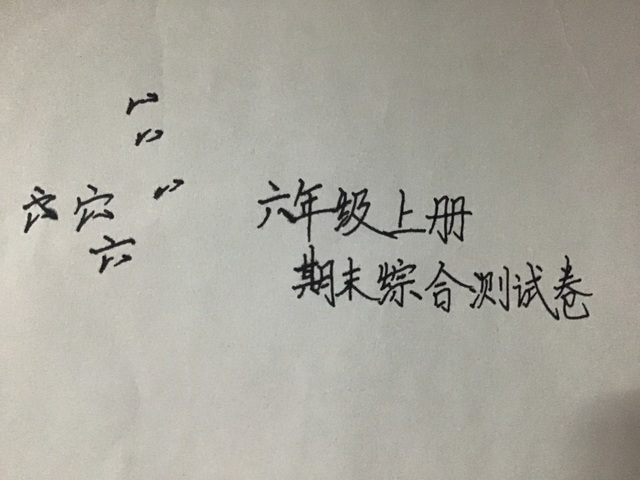 六年级上册
期末综合测试卷
六